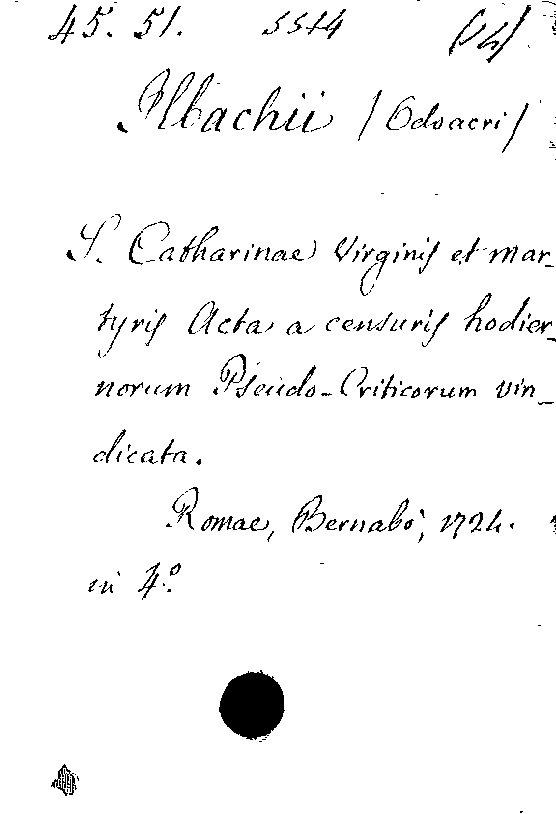 45. 51. 5514
Ilbachii (Odoacri)
S. Catharinae Virginis et mar-
tyris Acta a censuris hodier-
norum Pseudo-Criticorum vin-
dicata.
Romae, Bernabò, 1724.
in 4.º